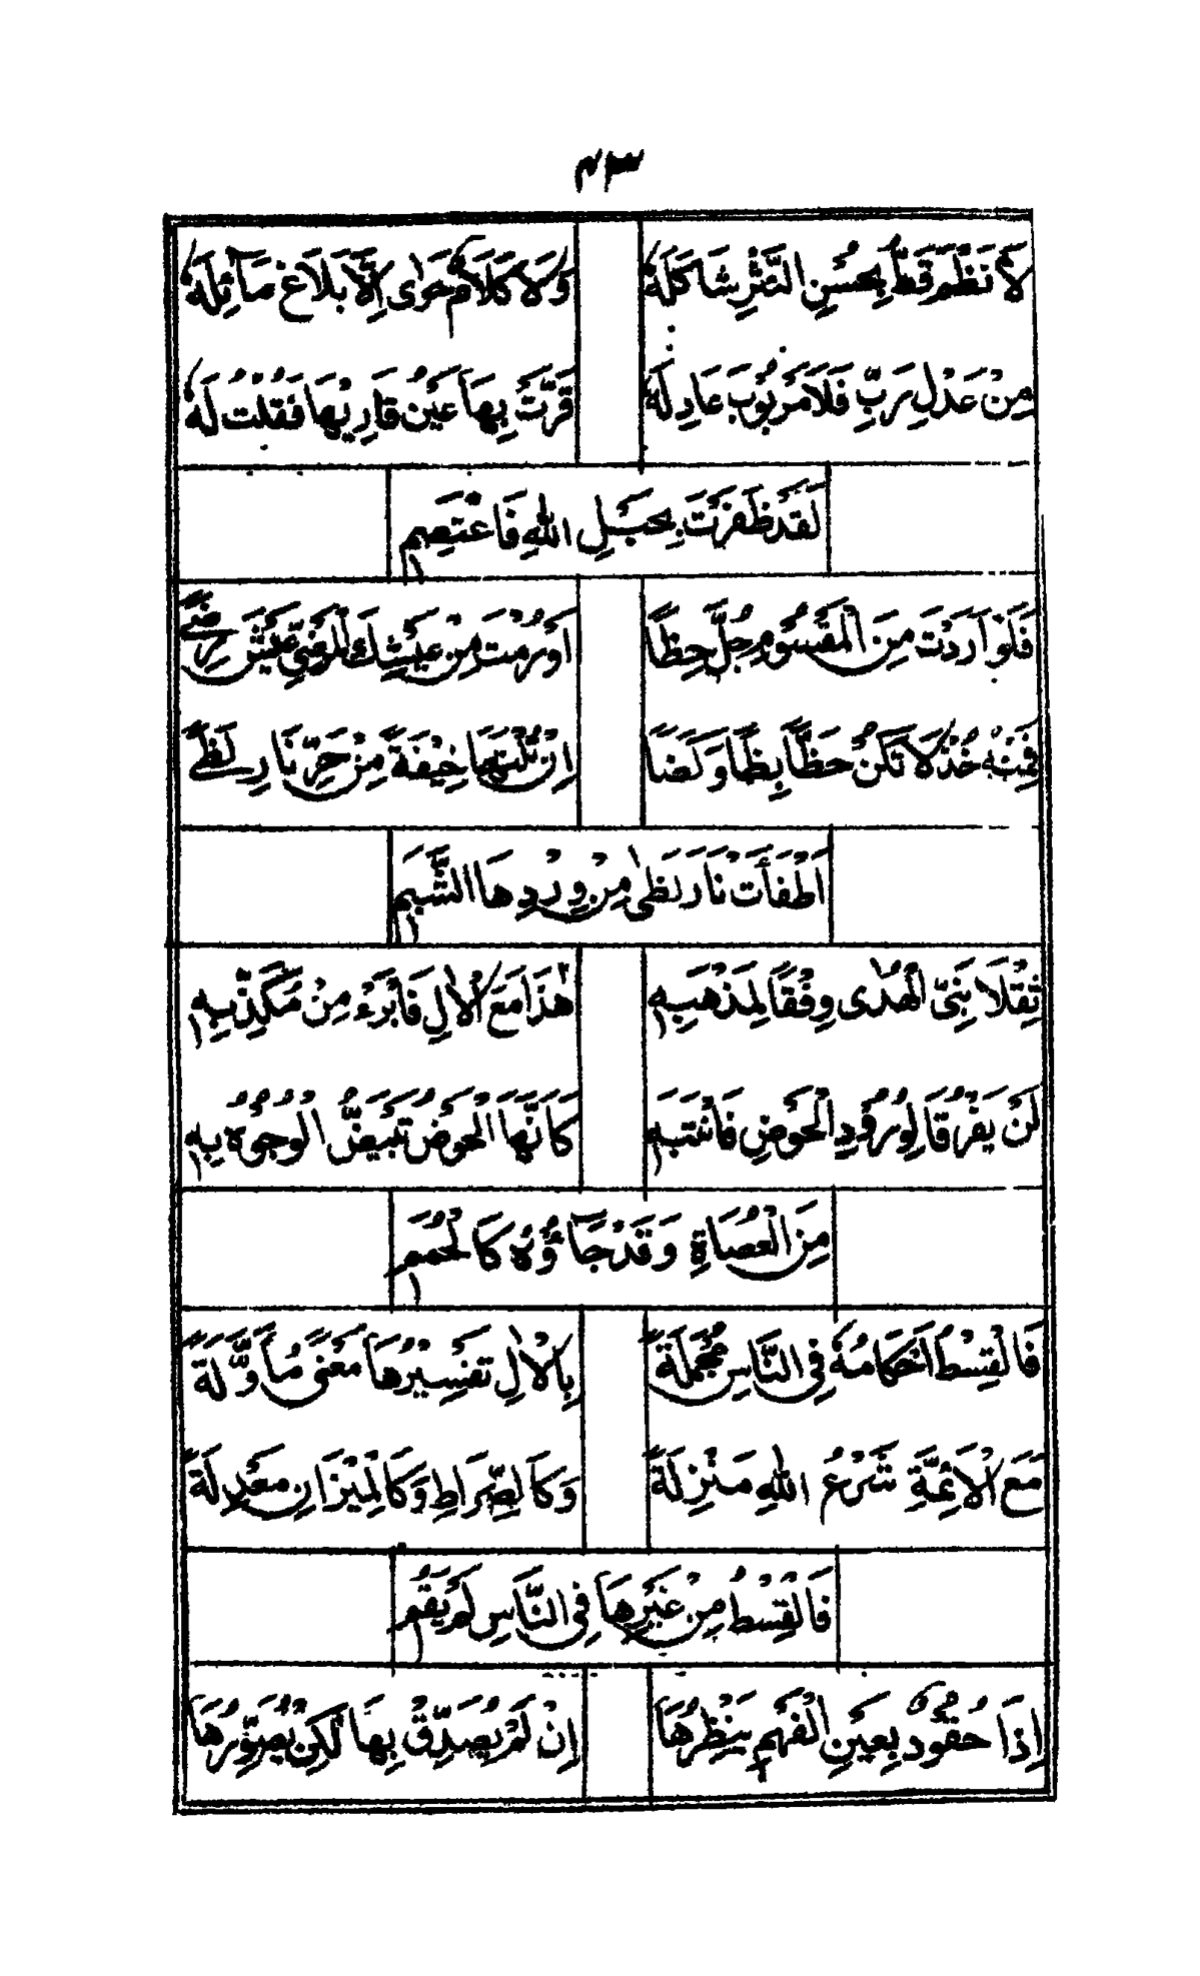 ٤٣
لَا نَظْمَ قَطُّ بِحُسْنِ النَّثْرِ شَاكَلَهٗ وَلَا كَلَامٌ حَوٰى اِلَّا بَلَاغَ مَآئِلَهٗ
مِنْ عَدْلِ رَبٍّ فَلَا مَرْبُوبَ عَادِلَهٗ قَرَّتْ بِهَا عَيْنُ قَارِيْهَا فَقُلْتُ لَهٗ
لَقَدْ ظَفِرْتَ بِحَبْلِ اللهِ فَاعْتَصِمِ
فَلَوْ اَرَدْتَ مِنَ الْمَقْسُومِ جُلَّ حِظًا اَوْ رُمْتَ مِنْ عَيْشِكَ الْمَرْضِيِّ عَيْشَ رِضًى
فَمِنْهُ خُذْ لَا تَكُنْ حَظًّا بِظًا وَلَضًا اِنْ تَتْلُهَا خِيْفَةً مِنْ حَرِّ نَارِ لَظٰى
اَطْفَأْتَ نَارَ لَظٰى مِنْ وِرْدِهَا الشَّبِمِ
ثِقْلَا بَنِيّ الْهُدٰى وِفْقًا لِمَذْهَبِهٖ هٰذَا مَعَ الْاٰلِ فَابْرَءْ مِنْ مُكَذِّبِهٖ
لَنْ يَفْرُقَا لِوُرُوْدِ الْحَوْضِ فَانْتَبِهٖ كَاَنَّهَا الْحَوْضُ تَبْيَضُّ الْوُجُوْهُ بِهٖ
مِنَ الْعُصَاةِ وَقَدْ جَآؤُهُ كَالْحُمَمِ
فَالْقِسْطُ اَحْكَامُهٗ فِى النَّاسِ مُجْمَلَةً بِالْاٰلِ تَفْسِيْرُهَا مَعْنًى مُاَوَّلَةً
مَعَ الْاَئِمَّةِ شَرْعُ اللهِ مَنْزِلَةً وَكَالصِّرَاطِ وَكَالْمِيْزَانِ مَعْدِلَةً
فَالْقِسْطُ مِنْ غَيْرِهَا فِى النَّاسِ لَمْ يَقُمِ
اِذَا حُقُودٌ بِعَيْنِ الْفَهْمِ يَنْظُرُهَا اِنْ لَمْ يُصَدِّقْ بِهَا لٰكِنْ يُصَوِّرُهَا